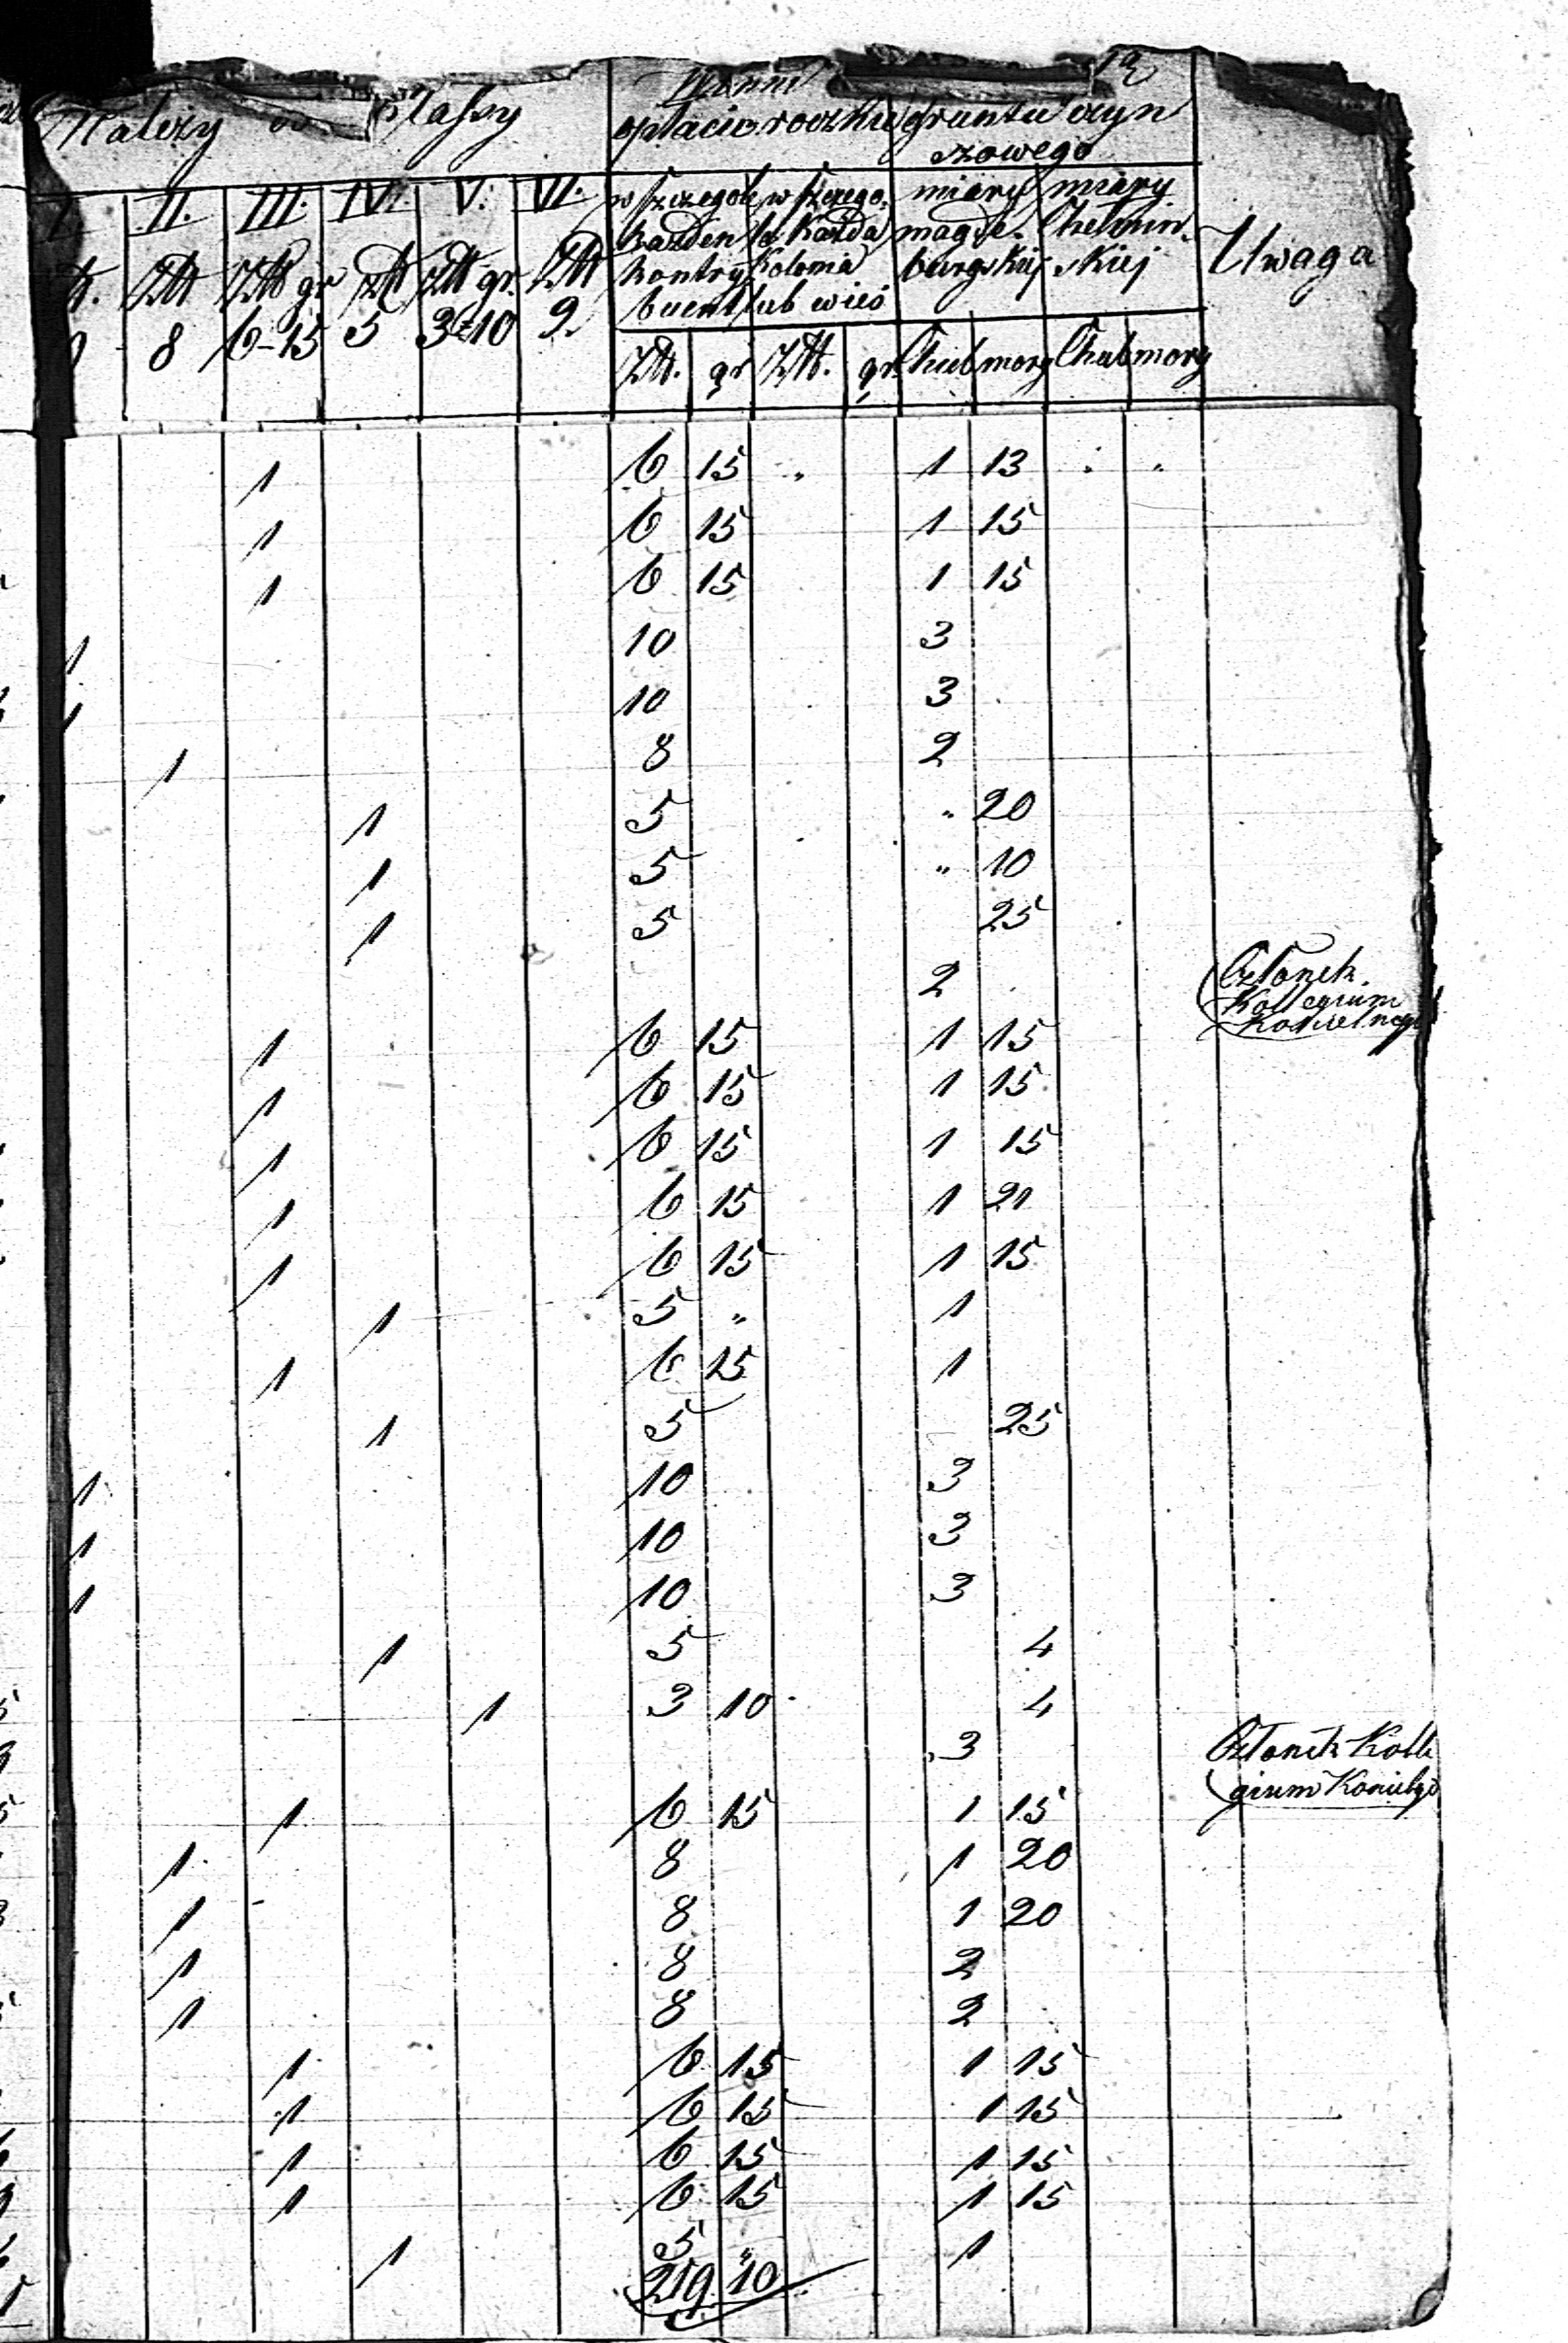 Należy do Klassy
Winni
opłacić rocznie gruntu czyn
szowego
Uwaga
I. II. III. IV. V. VI.
w szczegole w szczego. miary miary
każden le każda magde. Chełmin.
kontry kolonia burgskiej skiej
buent lub wieś
Złł Złł gr Złł Złł gr. Złł
8 6-15 5 3-10 2
Złł. gr Złł. gr. Chub morg Chub morg
1 6 15 " 1 13 " "
1 6 15 1 15
1 6 15 1 15
1 10 3
1 10 3
1 8 2
1 5 " 20
1 5 " 10
1 5 25
2 Członek
Kollegium
Kościelnego
1 6 15 1 15
1 6 15 1 15
1 6 15 1 15
1 6 15 1 21
1 6 15 1 15
1 5 " 1
1 6 15 1
1 5 25
1 10 3
1 10 3
1 10 3
1 5 4
1 3 10 4
3 Członek Kolle
gium Kościelgo
1 6 15 1 15
1 8 1 20
1 8 1 20
1 8 2
1 8 2
1 6 15 1 15
1 6 15 1 15
1 6 15 1 15
1 6 15 1 15
1 5 " 1
219 10